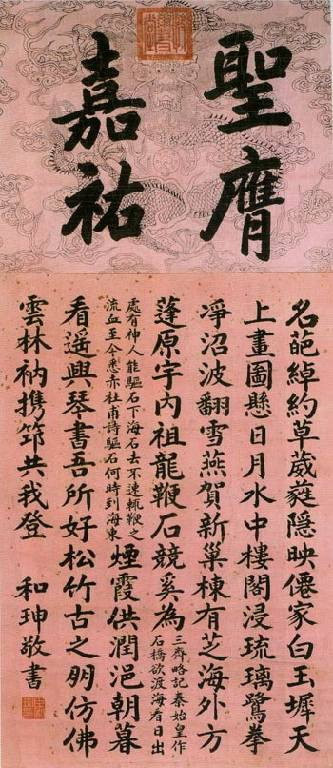 聖膺
嘉祐
名葩綽約草葳蕤隱映僊家白玉墀天
上畫圖懸日月水中樓閣浸琉璃鷺拳
凈沼波翻雪燕賀新巢棟有芝海外方
蓬原宇內祖龍鞭石競奚為
三齊略記秦始皇作
石橋欲渡海看日出
處有神人能驅石下海石去不速輒鞭之
流血至今悉赤杜甫詩驅石何時到海東
煙霞供潤浥朝暮
看遙興琴書吾所好松竹古之朋仿佛
雲林衲攜筇共我登 和珅敬書